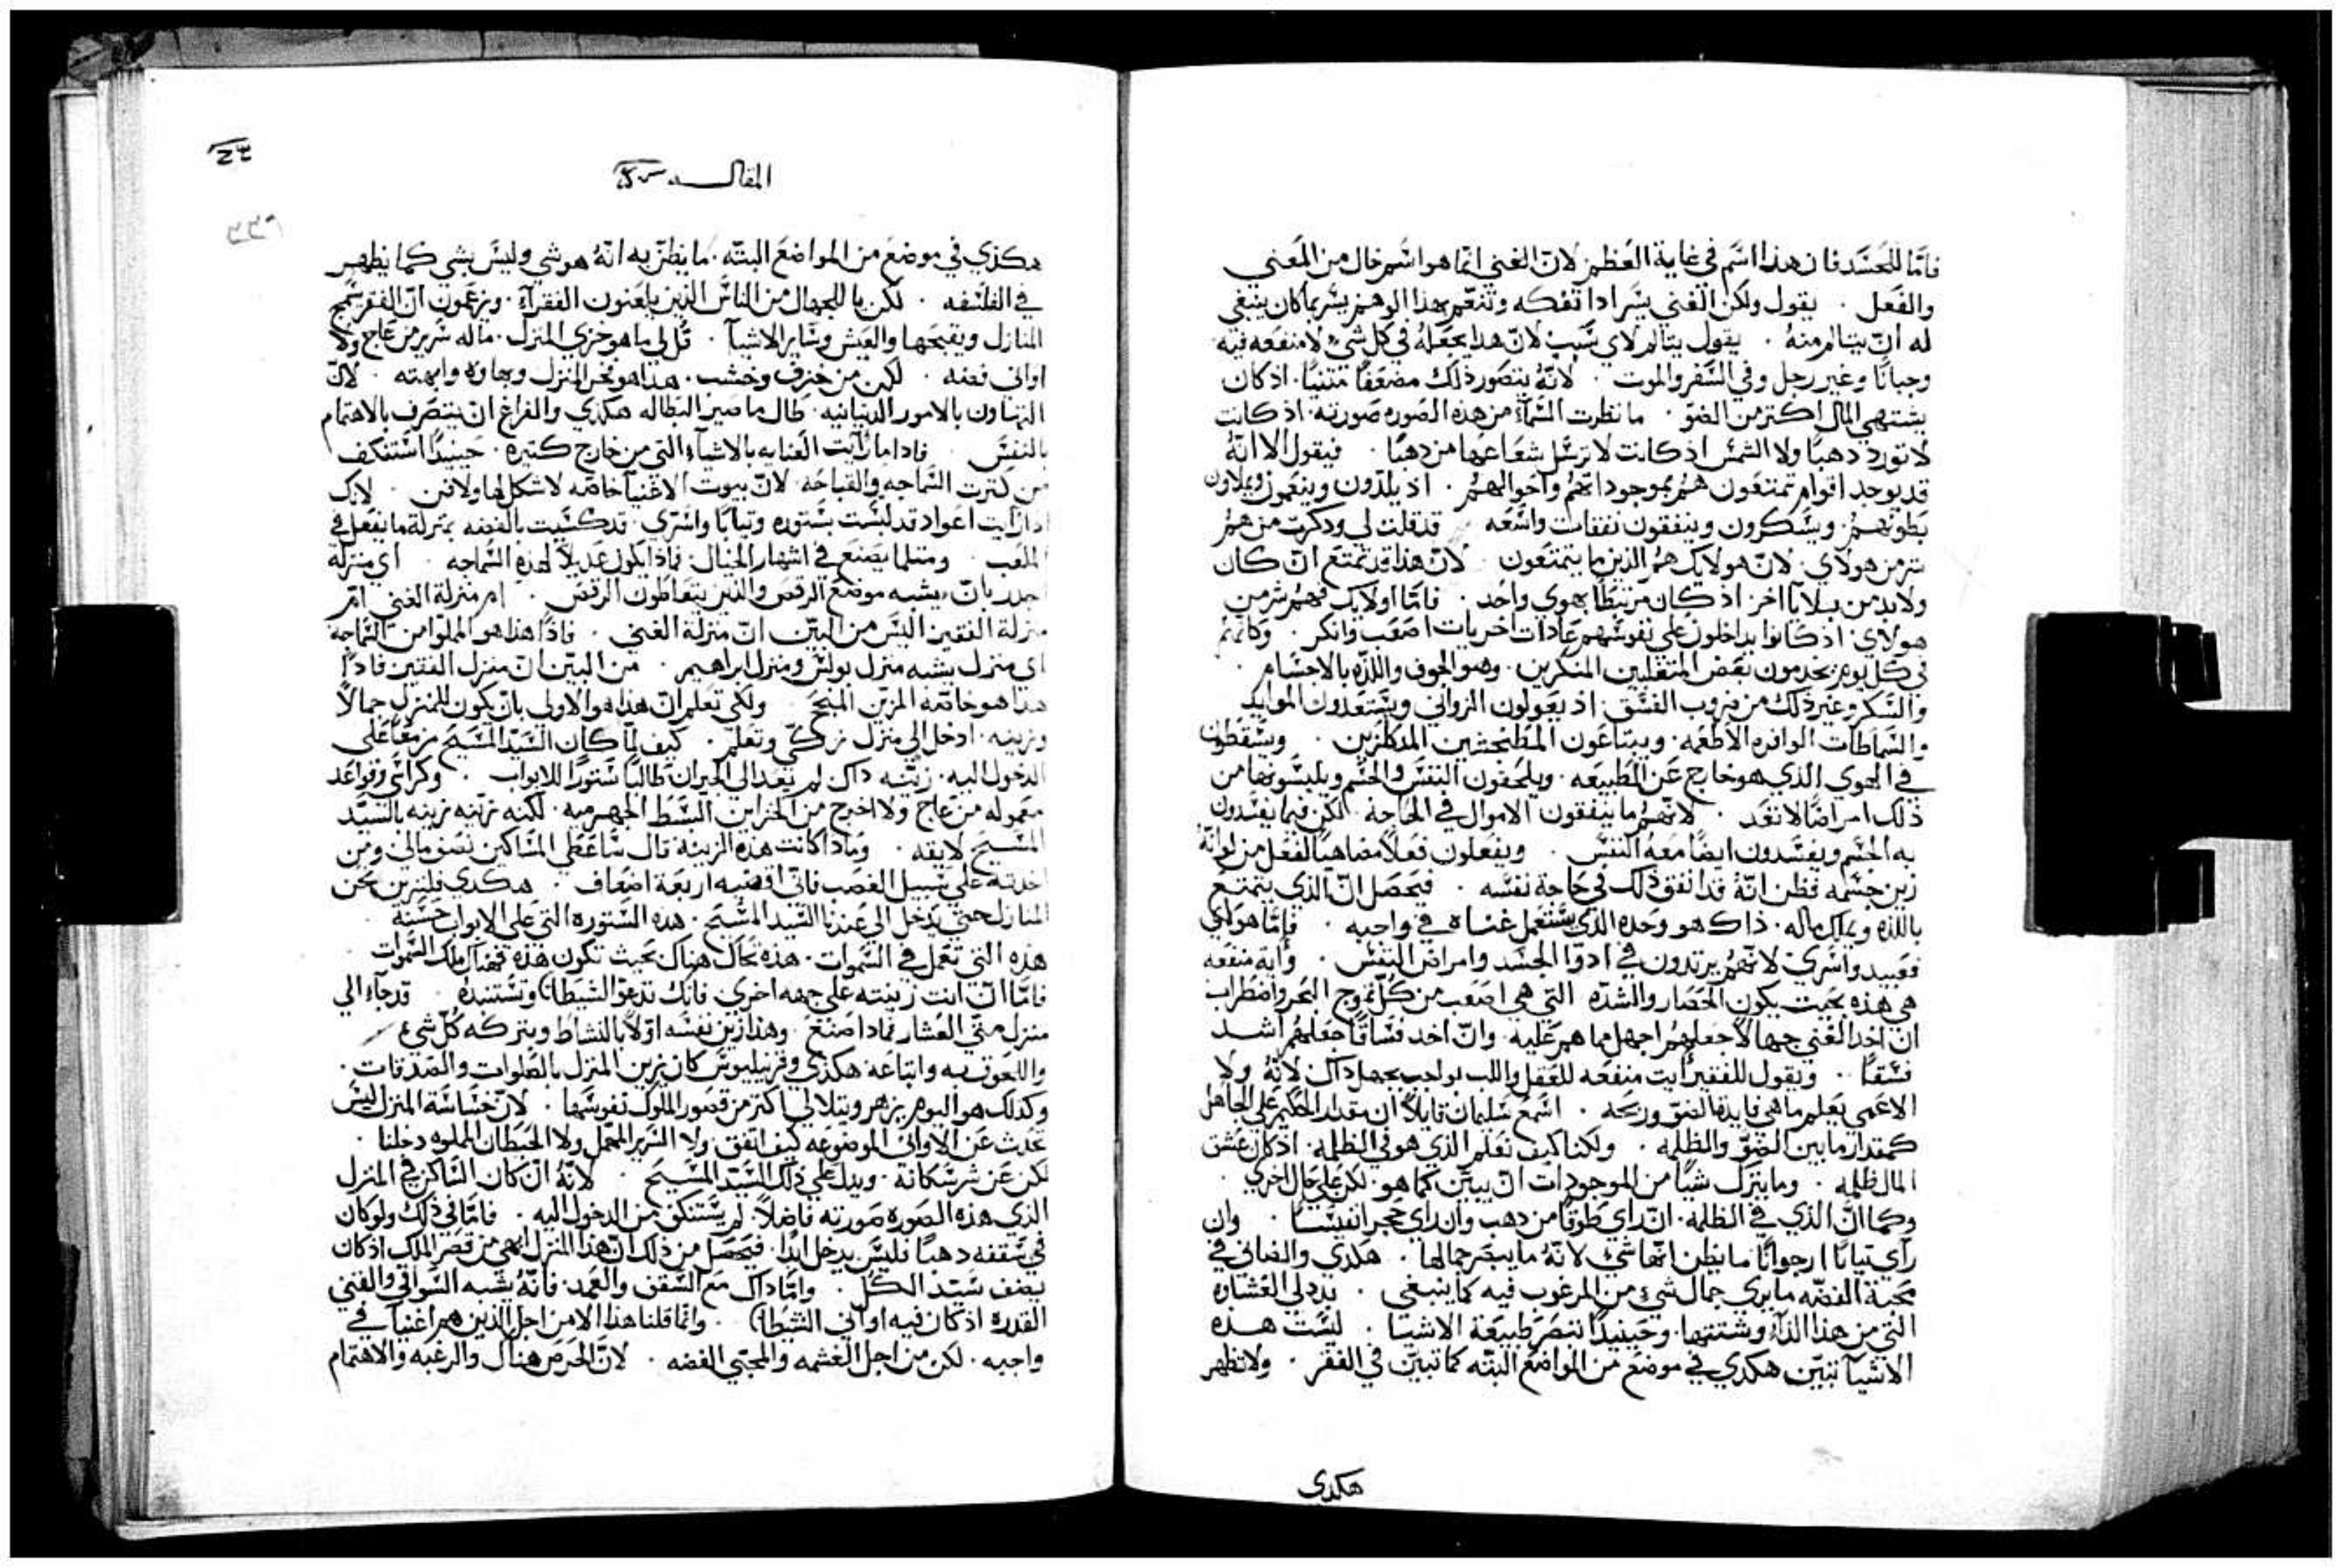 فامّا للحسد فان هذا اسّم في غاية العظم لانّ الغني انّما هو اسّم خال من المعني
والفعل . يقول ولكن الغني يسّر اذا تفكه وتنعم بهذا الوهم يسّر بما كان ينبغي
له انّ يتالم منهُ . يقول يتالم لاي سَبب لانّ هذا يجعلهُ في كل شيء لا منفعه فيه
وجبانًا وغير رجل وفي السّفر والموت . لانّهُ يتصور ذلك مضعفًا . اذ كان
يشتهي المال اكتر من الضوّ . ما نظرت السّماء من هذه الصوره صورته . اذ كانت
لا تورد دهبًا ولا الشمسّ اذ كانت لا ترسّل شعاعها من دهبًا . فيقول الا انّهُ
قد يوجد اقوام تمتعون هم بموجوداتهم واحوالهم . اذ يلدّون وينعمون ويملاون
بطونهم . ويسّكرون وينفقون نفقات واسّعه قد قلت لي وذكرت من هم
شر من هولاي . لانّ هولايك هم الذين ما يتمتعون . لانّ هذا قد تمتع انّ كان
ولا بد من بلايا اخر اذ كان مرتبطًا بهوي واحد . فامّا اولايك فهم شر من
هولاي . اذ كانوا يداخلون علي نفوسّهم عادات اخريات اصعب وانكر . وكانّهم
في كل يوم يخدمون بعض المتغلبين المنكرين . وهو الجوف واللذّه بالاجسّام
والسّكر وغير ذلك من ضروب الفسّق . اذ يعولون الزواني ويسّتعدون الموايد
والسّماطات الوافره الاطعمه . ويبتاعون . ويسّقطون
في الهوي الذي هو خارج عن الطبيعه . ويلحفون النفسّ والجسّم ويلبسّونهما من
ذلك امراضًا لا تعد . لانّهم ما ينفقون الاموال في الحاجه . لكن فيما يفسّدون
به الجسّم ويفسّدون ايضًا معهُ النفسّ . ويفعلون فعلًا مضاهيًا لفعل من لو انّهُ
زين جسّمه فظن انّهُ قد انفق ذلك في حاجة نفسّه . فيحصل انّ الذي يتمتع
باللذّه ويملك ماله . ذاك هو وحده الذي يسّتعمل غناه في واجبه . فامّا هولاي
فعبيد واسّري لانّهم يرتدون في ادوا الجسّد وامراض النفسّ . وأية منفعه
هي هذه بحيث يكون الحصار والشدّه التي هي اصعب من كلّ تموج البحر واضطراب
ان اخد الغني جهالًا جعلهم اجهل مما هم عليه . وانّ اخد فسّاقًا جعلهم اشد
فسّقًا . ويقول للفقير أيت منفعه للعقل واللب . لانّهُ ولا
الاعمي يعلم ما هي فايدة الضوّ وربحه . اسّمع سّليمان قايلًا ان مقدار الحكيم علي الجاهل
كمقدار ما بين الضوّ والظلمه . ولكنا كيف نعلم الذي هو في الظلمه . اذ كان عشق
المال ظلمه . وما يترك شيًا من الموجودات ان يبيّن كما هو . لكن علي حال اخري .
وكما انّ الذي في الظلمه . انّ راي طوقًا من دهب وان راي حجر انفيسًّا . وان
رأي تيابًا ارجوانًا ما يظن انّها شيء . لانّهُ ما يبصر جمالها . هكدي والفاني في
محبة الفضّه ما يري جمال شيء من المرغوب فيه كما ينبغي . بدد لي الغشاوه
التي من هذا الدّاء وشتتها . وحينيدًا تنضر طبيعة الاشيا . ليسّت هده
الاشيا تتبيّن هكدي في موضع من المواضع البتّه كما تبيّن في الفقر . ولا تظهر
هكدي
المقاله
هكذي في موضع من المواضع البتّه . ما يظنّ به انّهُ هو شي وليسّ بشي كما يظهر
في الفلسّفه . لكن يا للجهال من الناسّ الذين يلعنون الفقرآء . ويزعمون انّ الفقر يسّمج
المنازل ويقبحها والعيش وسّاير الاشيآ . قل لي ما هو خزي المنزل . ما له سّرير من عاج ولا
اواني فضه . لكن من خزف وخشب . هذا هو فخر المنزل وبهاوه وابهته . لانّ
التهاون بالامور الدنيانيه . طال ما صير البطاله هكدي والفراغ انّ يتصرف بالاهتمام
بالنفسّ . فاذا ما رأيت العنايه بالاشياء التي من خارج كتيره . حينيدًا اسّتنكف
من كترت السّماجه والقباحه . لانّ بيوت الاغنيا خاصّه لا شكل لها ولا فن . لانك
اذا رايت اعواد قد لبسّت سّتوره وتيابًا واسّره قد كسّيت بالفضه بمنزلة ما يفعل في
الملعب . ومتلما يصنع في اشهار الخيال . فماذا يكون عديلًا لهذه السّماجه . اي منزلة
اجدر بانّ يشبه موضع الرقص والذين يتعاطون الرقص . ام منزلة الغني ام
منزلة الفقير اليسّ من البيّن انّ منزلة الغني . فاذًا هذا هو المملوا من السّماجه
اي منزل يشبه منزل بولسّ ومنزل ابراهيم . من البيّن انّ منزل الفقير فاذًا
هذا هو خاصّه المزين المنجح ولكي تعلم انّ هذا هو الاولي بانّ يكون للمنزل جمالًا
وزينه . ادخل الي منزل زكّي وتعلّم . كيف لمّا كان السّيّد المسّيح مزمعًا علي
الدخول اليه . زيّنه ذاك لم يعد الي الجيران طالبًا سّتورًا للابواب . وكراسّي وقواعد
معموله من عاج ولا اخرج من الخزاين البسّط الجهرميه . لكنه زيّنه زينه بالسّيّد
المسّيح لايقه . وماذا كانت هذه الزينه . قال سّاعطي المسّاكين نصف مالي ومن
اخدته علي سّبيل الغصب فانّي اقضيه اربعة اضعاف . هكدي فلنزين نحن
المنازل حتي يدخل الي عندنا السّيد المسّيح . هذه السّتوره التي علي الابواب حسّنة
هذه التي تعمل في السّموات . هذه تحاك هناك بحيث تكون هذه فهناك ملك السّموات .
فامّا انّ انت زينته علي جهه اخري . فانك تدعوّ الشيطان وتسّتنده . قد جاء الي
منزل متّي العشار فماذا صنع . وهذا زين نفسّه اوّلًا بالنشاط وبتركه كلّ شيء
واللحوق به واتباعه . هكذي وقرنيليوسّ كان يزين المنزل بالصّلوات والصّدقات .
وكدلك هو اليوم يزهر ويتلالي اكتر من قصور الملوك نفوسّها . لانّ خسّاسّة المنزل ليسّ
تحدث عن الاواني الموضوعه كيف اتفق ولا السّرير المهمل ولا الحيطان المملوه دخلنا .
لكن عن شر سّكانه . ويدل علي ذلك السّيّد المسّيح . لانّهُ انّ كان السّاكن في المنزل
الذي هذه الصوره صورته فاضلًا . لم يسّتنكف من الدخول اليه . فامّا في ذلك ولو كان
في سّقفه دهبًا فليسّ يدخل ابدًا . فيحصل من ذلك انّ هذا المنزل ابهي من قصر الملك اذ كان
يضيف سّيّد الكل . وامّا ذاك مع السّقف والعمد . فانّهُ يشبه السّواقي والقني
القدره اذ كان فيه اواني الشيطان . وانّما قلنا هذا الا من اجل الذين هم اغنيا في
واجبه . لكن من اجل الغشمه والمحبّي الفضه . لانّ الحرص هناك والرغبه والاهتمام